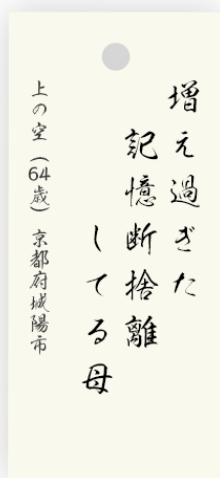 増え過ぎた
記憶断捨離
してる母
上の空（64歳） 京都府城陽市